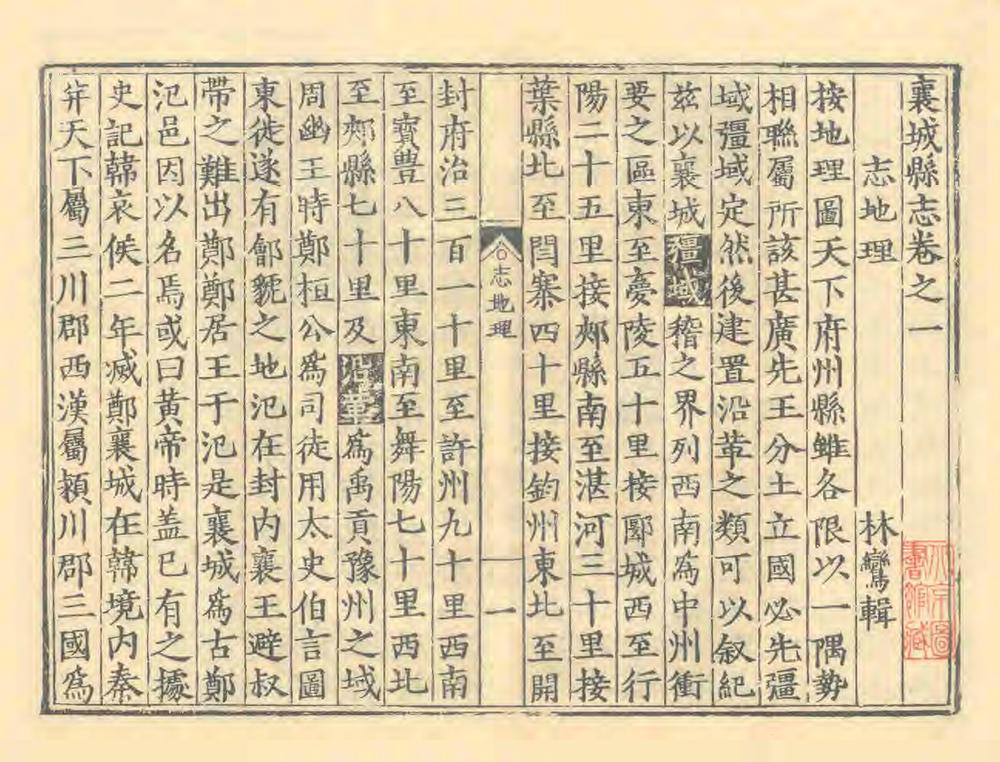 襄城縣志卷之一
志地理 林鸞輯
按地理圖天下府州縣雖各限以一隅勢
相聯屬所該甚廣先王分土立國必先疆
域疆域定然後建置沿革之類可以叙紀
兹以襄城疆域稽之界列西南爲中州衝
要之區東至臺陵五十里接郾城西至行
陽二十五里接郟縣南至湛河三十里接
葉縣北至閆寨四十里接鈞州東北至開
志地理 一
封府治三百一十里至許州九十里西南
至寳豊八十里東南至舞陽七十里西北
至郟縣七十里及沿革爲禹貢豫州之域
周幽王時鄭桓公爲司徒用太史伯言圖
東徙遂有鄶虢之地氾在封内襄王避叔
帶之難出鄭鄭居王于氾是襄城爲古鄭
氾邑因以名焉或曰黄帝時盖已有之據
史記韓哀侯二年滅鄭襄城在韓境内秦
并天下屬三川郡西漢屬潁川郡三國爲